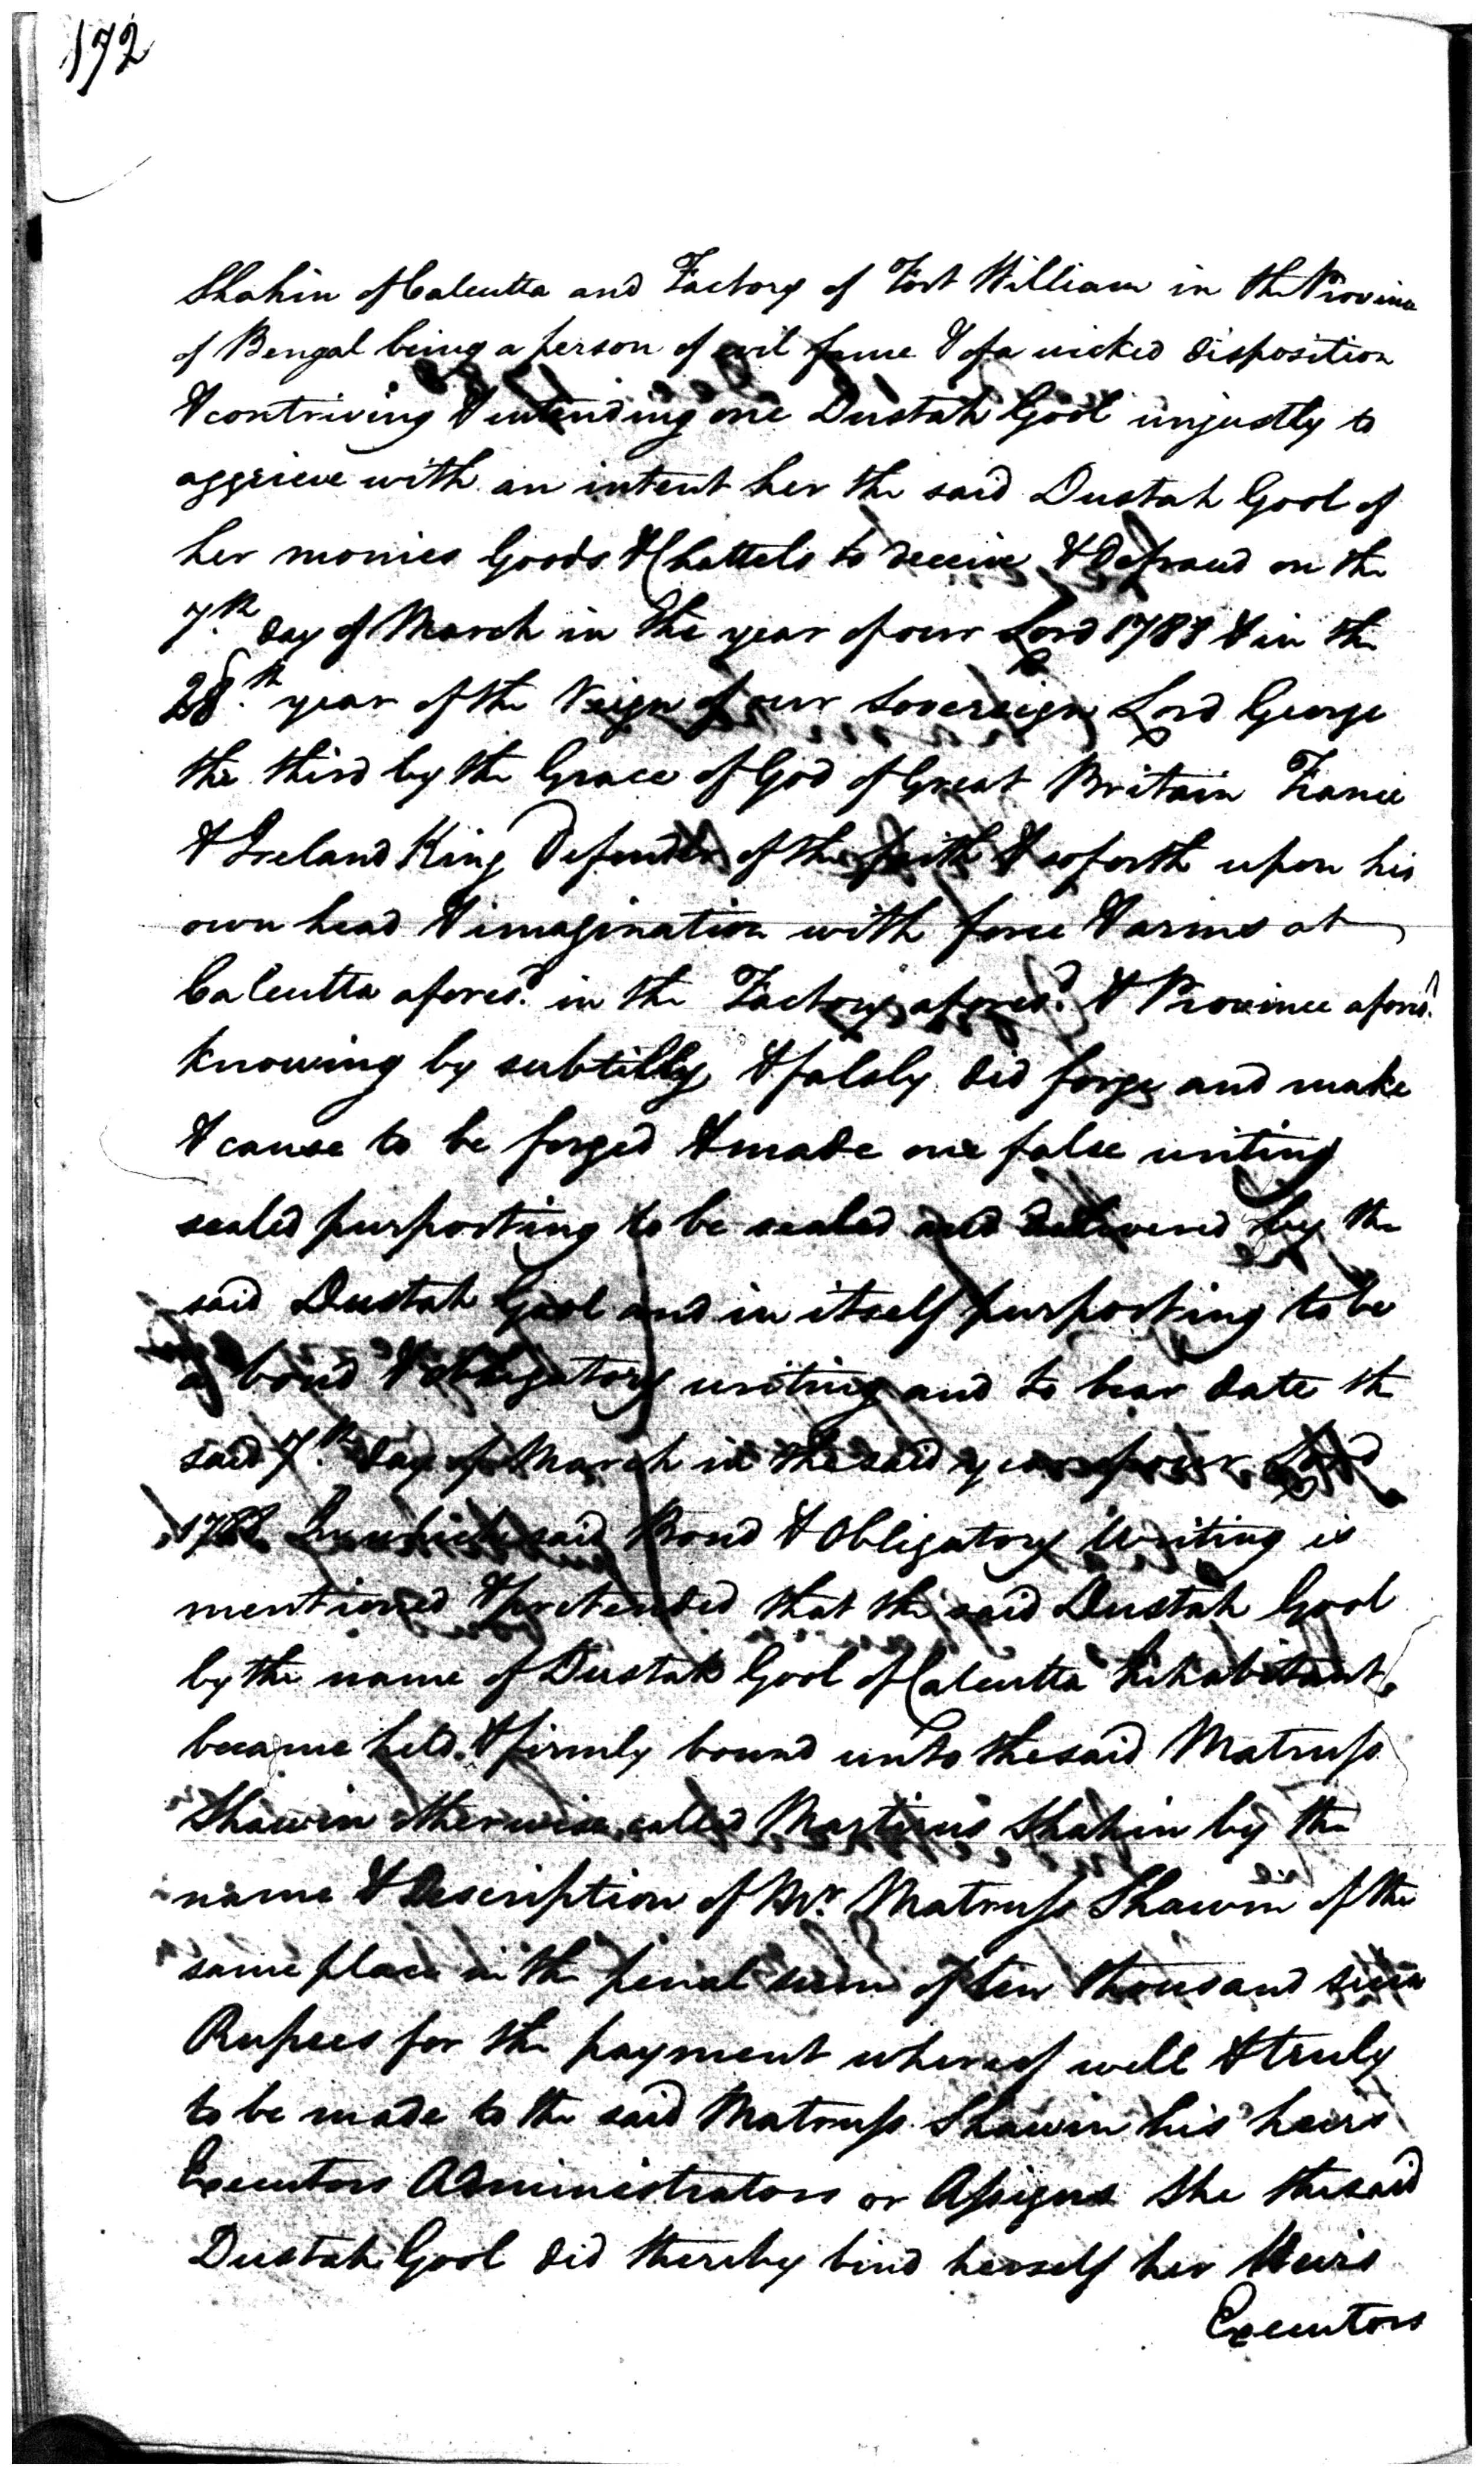 192
Shahin of Calcutta and Factory of Fort William in the Province
of Bengal being a person of evil fame & of a wicked disposition
& contriving & intending one Dustah Gool unjustly to
aggrieve with an intent her the said Dustah Gool of
her monies Goods & Chattels to deceive & defraud on the
7.th day of March in the year of our Lord 1788 & in the
28.th year of the Reign of our Sovereign Lord George
the third by the Grace of God of Great Britain France
& Ireland King Defender of the faith & soforth upon his
own head & imagination with force & arms at
Calcutta afores.d in the Factory afores.d & Province afores.d
knowing by subtilly & falsly did forge and make
& cause to be forged & made one false writing
sealed purporting to be sealed and delivered by the
said Dustah Gool and in itself purporting to be
a bond & obligatory writing and to bear date the
said 7.th day of March in the said year of our Lord
1788 In which said Bond & Obligatory Writing is
mentioned & pretended that the said Dustah Gool
by the name of Dustah Gool of Calcutta Inhabitant
became held & firmly bound unto the said Matruss
Shawin otherwise called Martirus Shahin by the
name & Description of Mr. Matruss Shawin of the
same place in the penal sum of ten thousand sicca
Rupees for the payment whereof well & truly
to be made to the said Matruss Shawin his heirs
Executors Administrators or Assigns She the said
Dustah Gool did thereby bind herself her Heirs
Executors